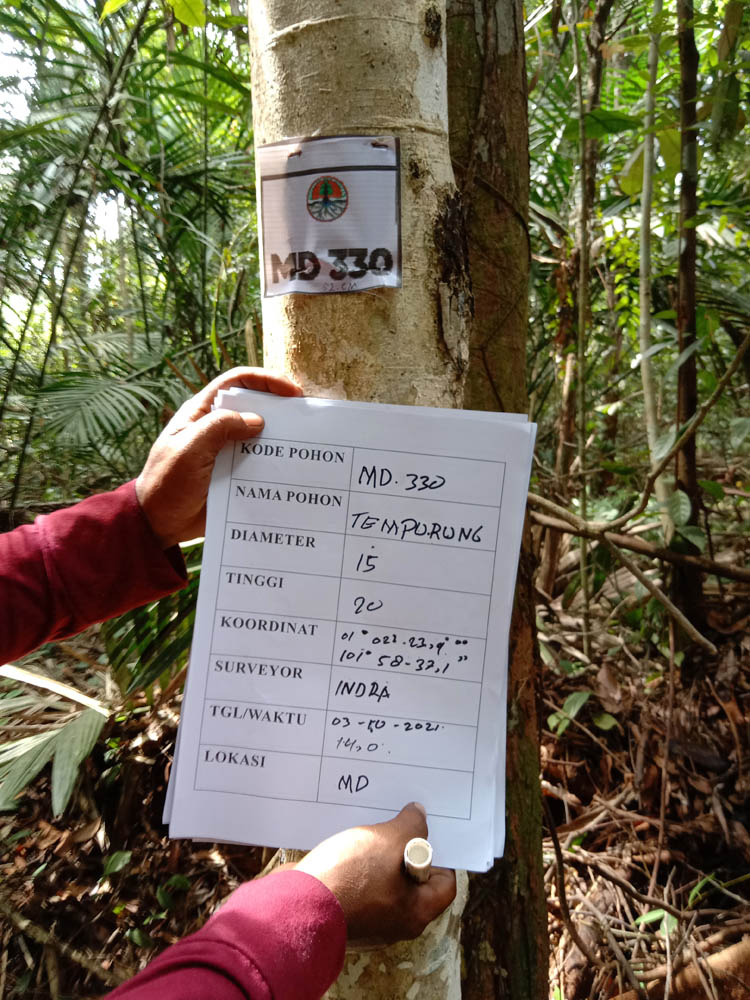 MD 330
KODE POHON MD. 330
NAMA POHON TEMPURUNG
DIAMETER 15
TINGGI 20
KOORDINAT 01° 02
101° 58-37,1"
SURVEYOR INDRA
TGL/WAKTU 03 - 2021
14,0
LOKASI MD